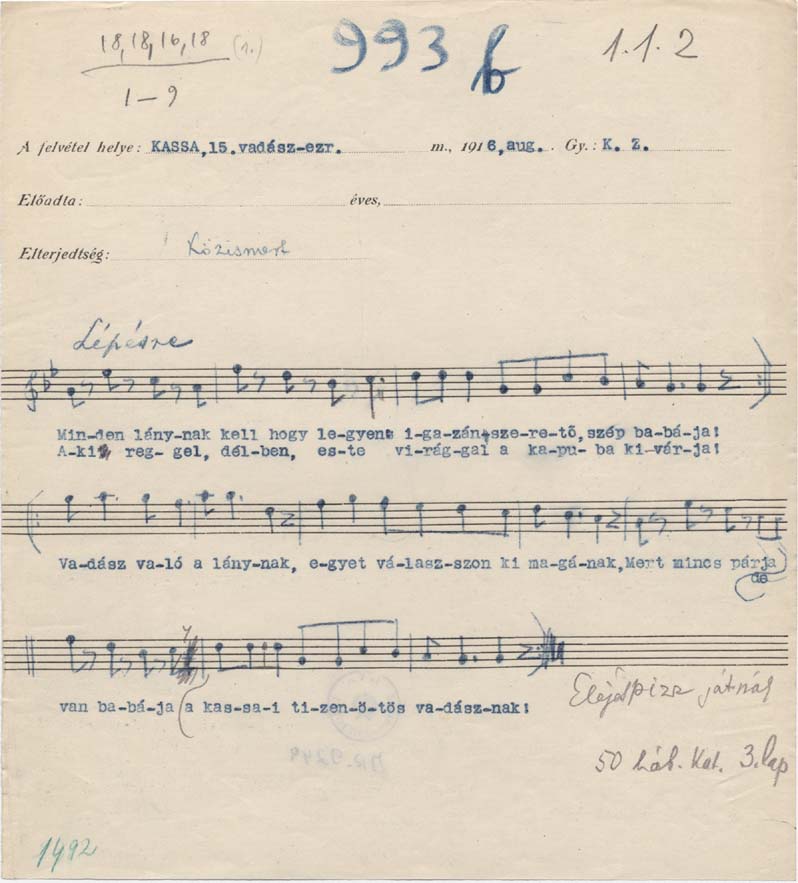 18,18,16,18 (1.)
993 b
1.1.2
1–9
A felvétel helye: KASSA,15.vadász-ezr. m., 1916,aug. Gy.: K. Z.
Előadta: éves,
Elterjedtség: Közismert
Lépésre
Min-den lány-nak kell hogy le-gyen i-ga-zán sze-re-tő, szép ba-bá-ja!
A-ki reg-gel, dél-ben, es-te vi-rág-gal a ka-pu-ba ki-vár-ja!
Va-dász va-ló a lány-nak, e-gyet vá-lasz-szon ki ma-gá-nak, Mert nincs párja
de
van ba-bá-ja a kas-sa-i ti-zen-ö-tös va-dász-nak!
játnál
50 háb. Kat. 3. lap
1492